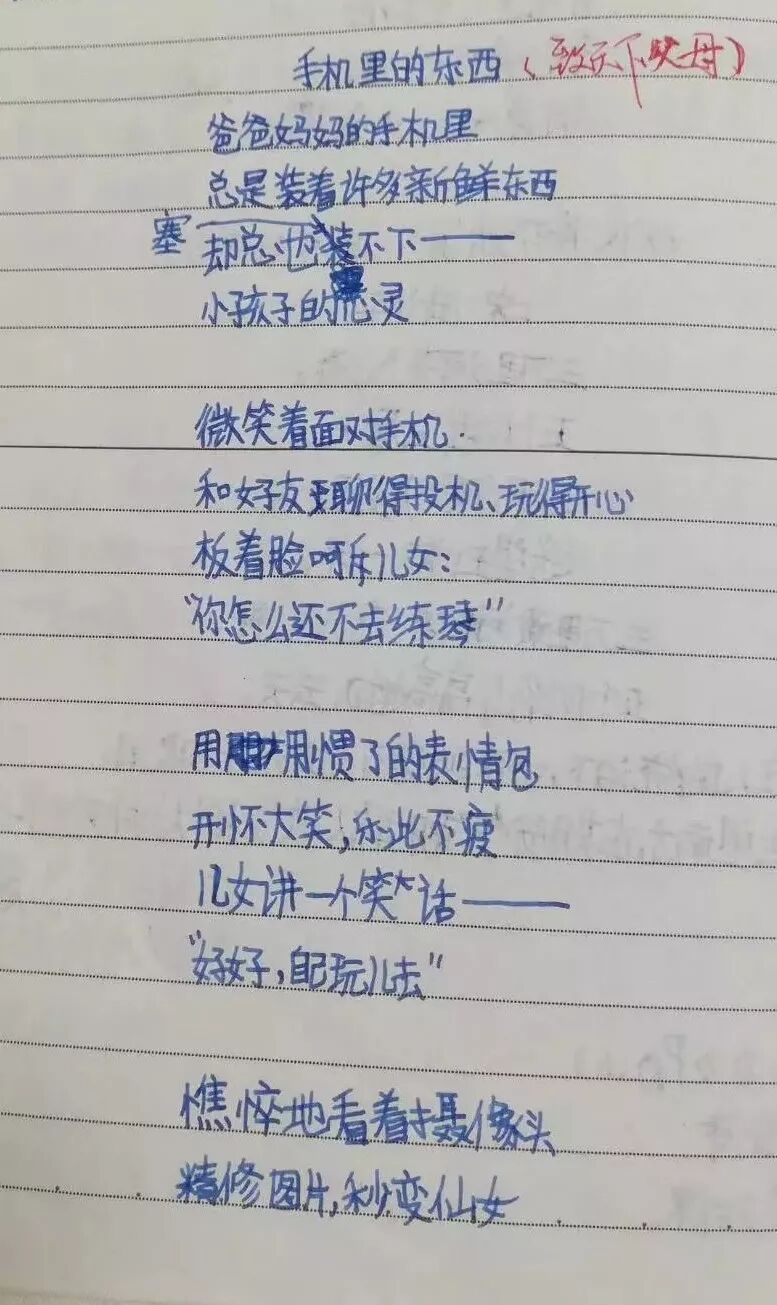 手机里的东西(致天下父母)
爸爸妈妈的手机里
总是装着许多新鲜东西
塞 却总也装不下——
小孩子的心灵
微笑着面对手机.
和好友聊得投机、玩得开心
板着脸呵斥儿女:
"你怎么还不去练琴"
用用惯了的表情包
开怀大笑,乐此不疲
儿女讲一个笑话——
"好好,自己玩儿去"
憔悴地看着摄像头
精修图片,秒变仙女